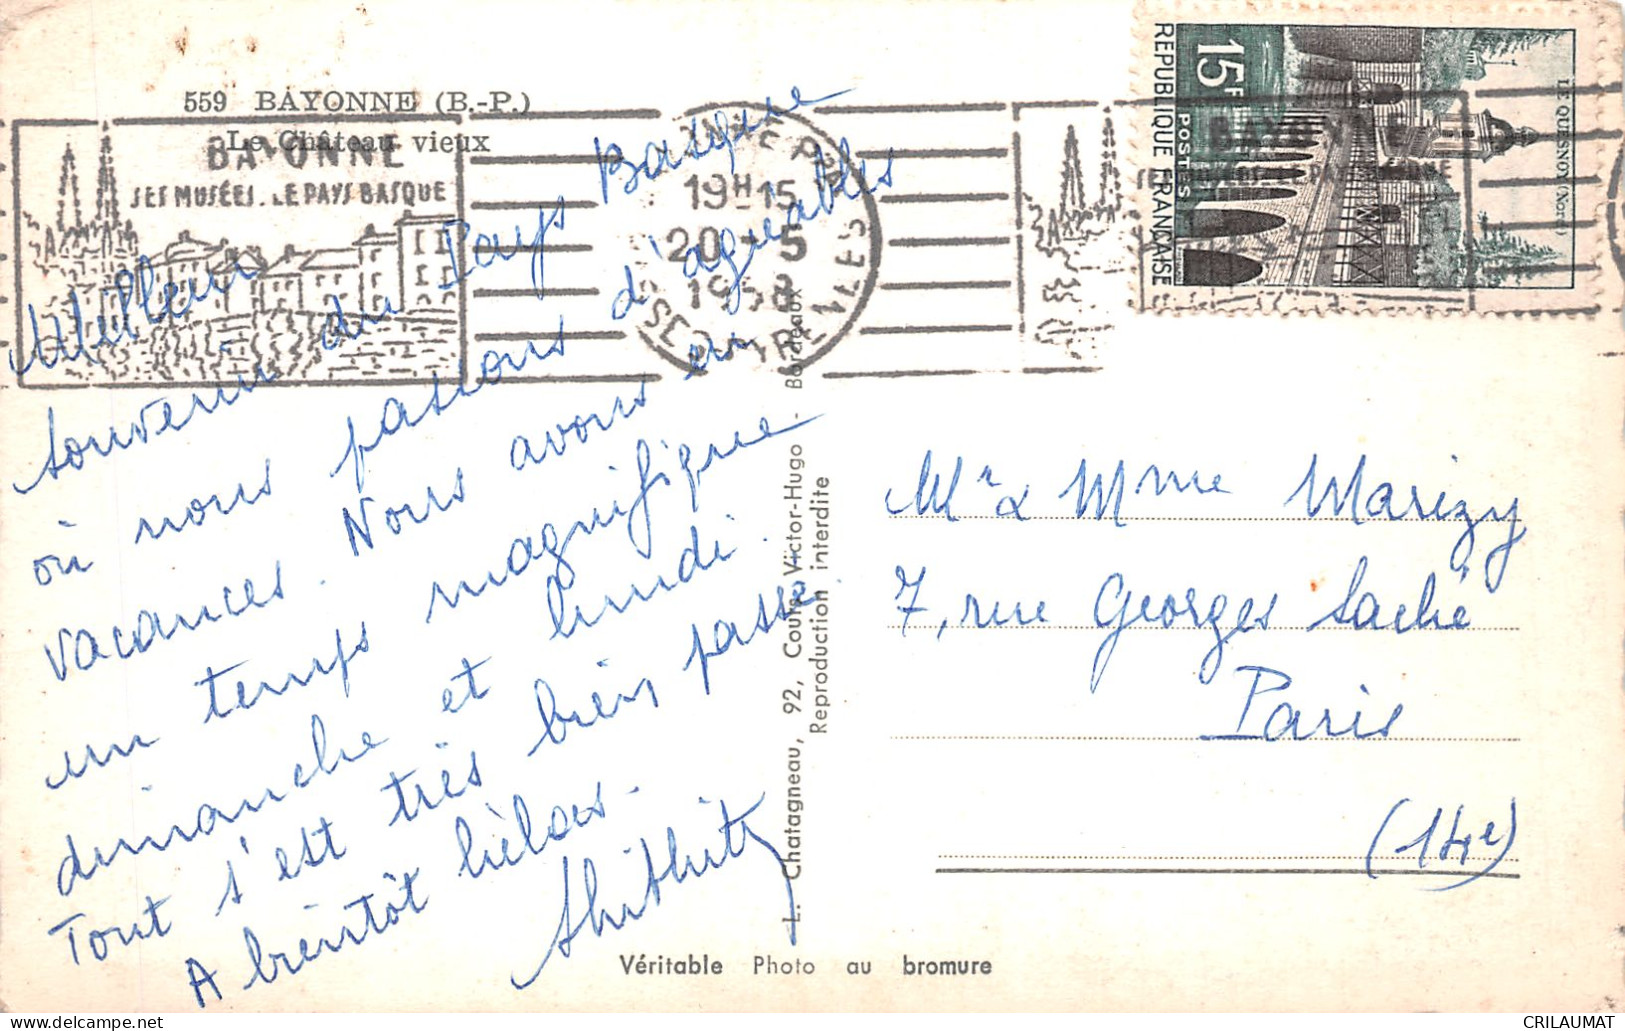 559 BAYONNE (B.-P.)
Le Château vieux
BAYONNE
SES MUSÉES. LE PAYS BASQUE
19H15
20 - 5
1958
BASSES PYRENEES
BAYONNE
15F
POSTES
REPUBLIQUE FRANÇAISE
LE QUESNOY (Nord)
Meilleur
souvenir du Pays Basque
où nous passons d'agréables
vacances. Nous avons eu
un temps magnifique
dimanche et lundi.
Tout s'est très bien passé.
A bientôt hélas.
Mr & Mme Marizy
7, rue Georges Saché
Paris
(14e)
L. Chatagneau, 92, Cours Victor-Hugo - Bordeaux
Reproduction interdite
Véritable Photo au bromure
CRILAUMAT